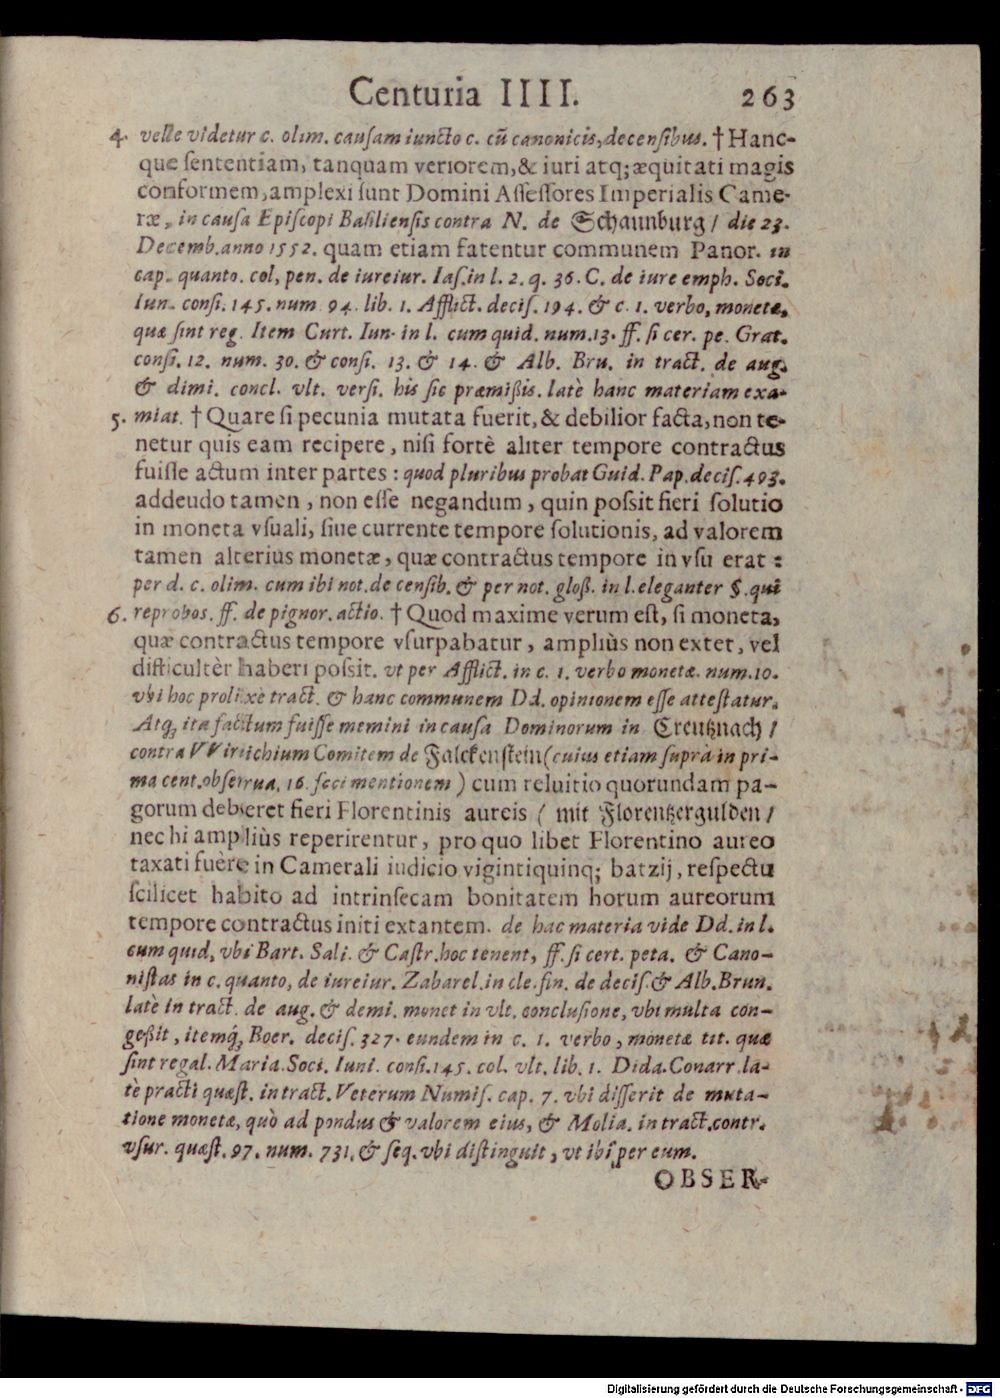 Centuria IIII. 263
4. velle videtur c. olim. cauſam iuncto c. cū canonicis, de cenſibus. † Hanc-
que ſententiam, tanquam veriorem, & iuri atq; æquitati magis
conformem, amplexi ſunt Domini Aſſeſſores Imperialis Came-
ræ, in cauſa Epiſcopi Baſilienſis contra N. de Schaunburg / die 23.
Decemb. anno 1552. quam etiam fatentur communem Panor. in
cap. quanto. col, pen. de iureiur. Iaſ. in l. 2. q. 36. C. de iure emph. Soci.
Iun. conſi. 145. num 94. lib. 1. Afflict. deciſ. 194. & c. 1. verbo, monetæ,
quæ ſint reg. Item Curt. Iun. in l. cum quid. num. 13. ff. ſi cer. pe. Grat.
conſi. 12. num. 30. & conſi. 13. & 14. & Alb. Bru. in tract. de aug.
& dimi. concl. vlt. verſi. his ſic præmißis. latè hanc materiam exa-
5. miat. † Quare ſi pecunia mutata fuerit, & debilior facta, non te-
netur quis eam recipere, niſi fortè aliter tempore contractus
fuiſſe actum inter partes: quod pluribus probat Guid. Pap. deciſ. 493.
addeudo tamen, non eſſe negandum, quin poſsit fieri ſolutio
in moneta vſuali, ſiue currente tempore ſolutionis, ad valorem
tamen alterius monetæ, quæ contractus tempore in vſu erat:
per d. c. olim. cum ibi not. de cenſib. & per not. gloß. in l. eleganter §. qui
6. reprobos. ff. de pignor. actio. † Quod maxime verum eſt, ſi moneta,
quæ contractus tempore vſurpabatur, ampliùs non extet, vel
difficultèr haberi poſsit. vt per Afflict. in c. 1. verbo monetæ. num. 10.
vbi hoc prolixè tract. & hanc communem Dd. opinionem eſſe atteſtatur.
Atq; ita factum fuiſſe memini in cauſa Dominorum in Creutznach /
contra VVirichium Comitem de Falckenſtein (cuius etiam ſuprà in pri-
ma cent. obſerua. 16. feci mentionem) cum reluitio quorundam pa-
gorum deberet fieri Florentinis aureis (mit Florentzergulden /
nec hi ampliùs reperirentur, pro quo libet Florentino aureo
taxati fuêre in Camerali iudicio vigintiquinq; batzij, reſpectu
ſcilicet habito ad intrinſecam bonitatem horum aureorum
tempore contractus initi extantem. de hac materia vide Dd. in l.
cum quid, vbi Bart. Sali. & Caſtr. hoc tenent, ff. ſi cert. peta. & Cano-
niſtas in c. quanto, de iureiur. Zabarel. in cle. fin. de deciſ. & Alb. Brun.
latè in tract. de aug. & demi. monet in vlt. concluſione, vbi multa con-
geßit, itemq́; Boer. deciſ. 327. eundem in c. 1. verbo, monetæ tit. quæ
ſint regal. Maria. Soci. Iuni. conſi. 145. col. vlt. lib. 1. Dida. Conarr. la-
tè practi quæſt. in tract. Veterum Numiſ. cap. 7. vbi diſſerit de muta-
tione monetæ, quò ad pondus & valorem eius, & Molia. in tract. contr.
vſur. quæſt. 97. num. 731. & ſeq. vbi diſtinguit, vt ibi per eum.
OBSER-
Digitalisierung gefördert durch die Deutsche Forschungsgemeinschaft - DFG